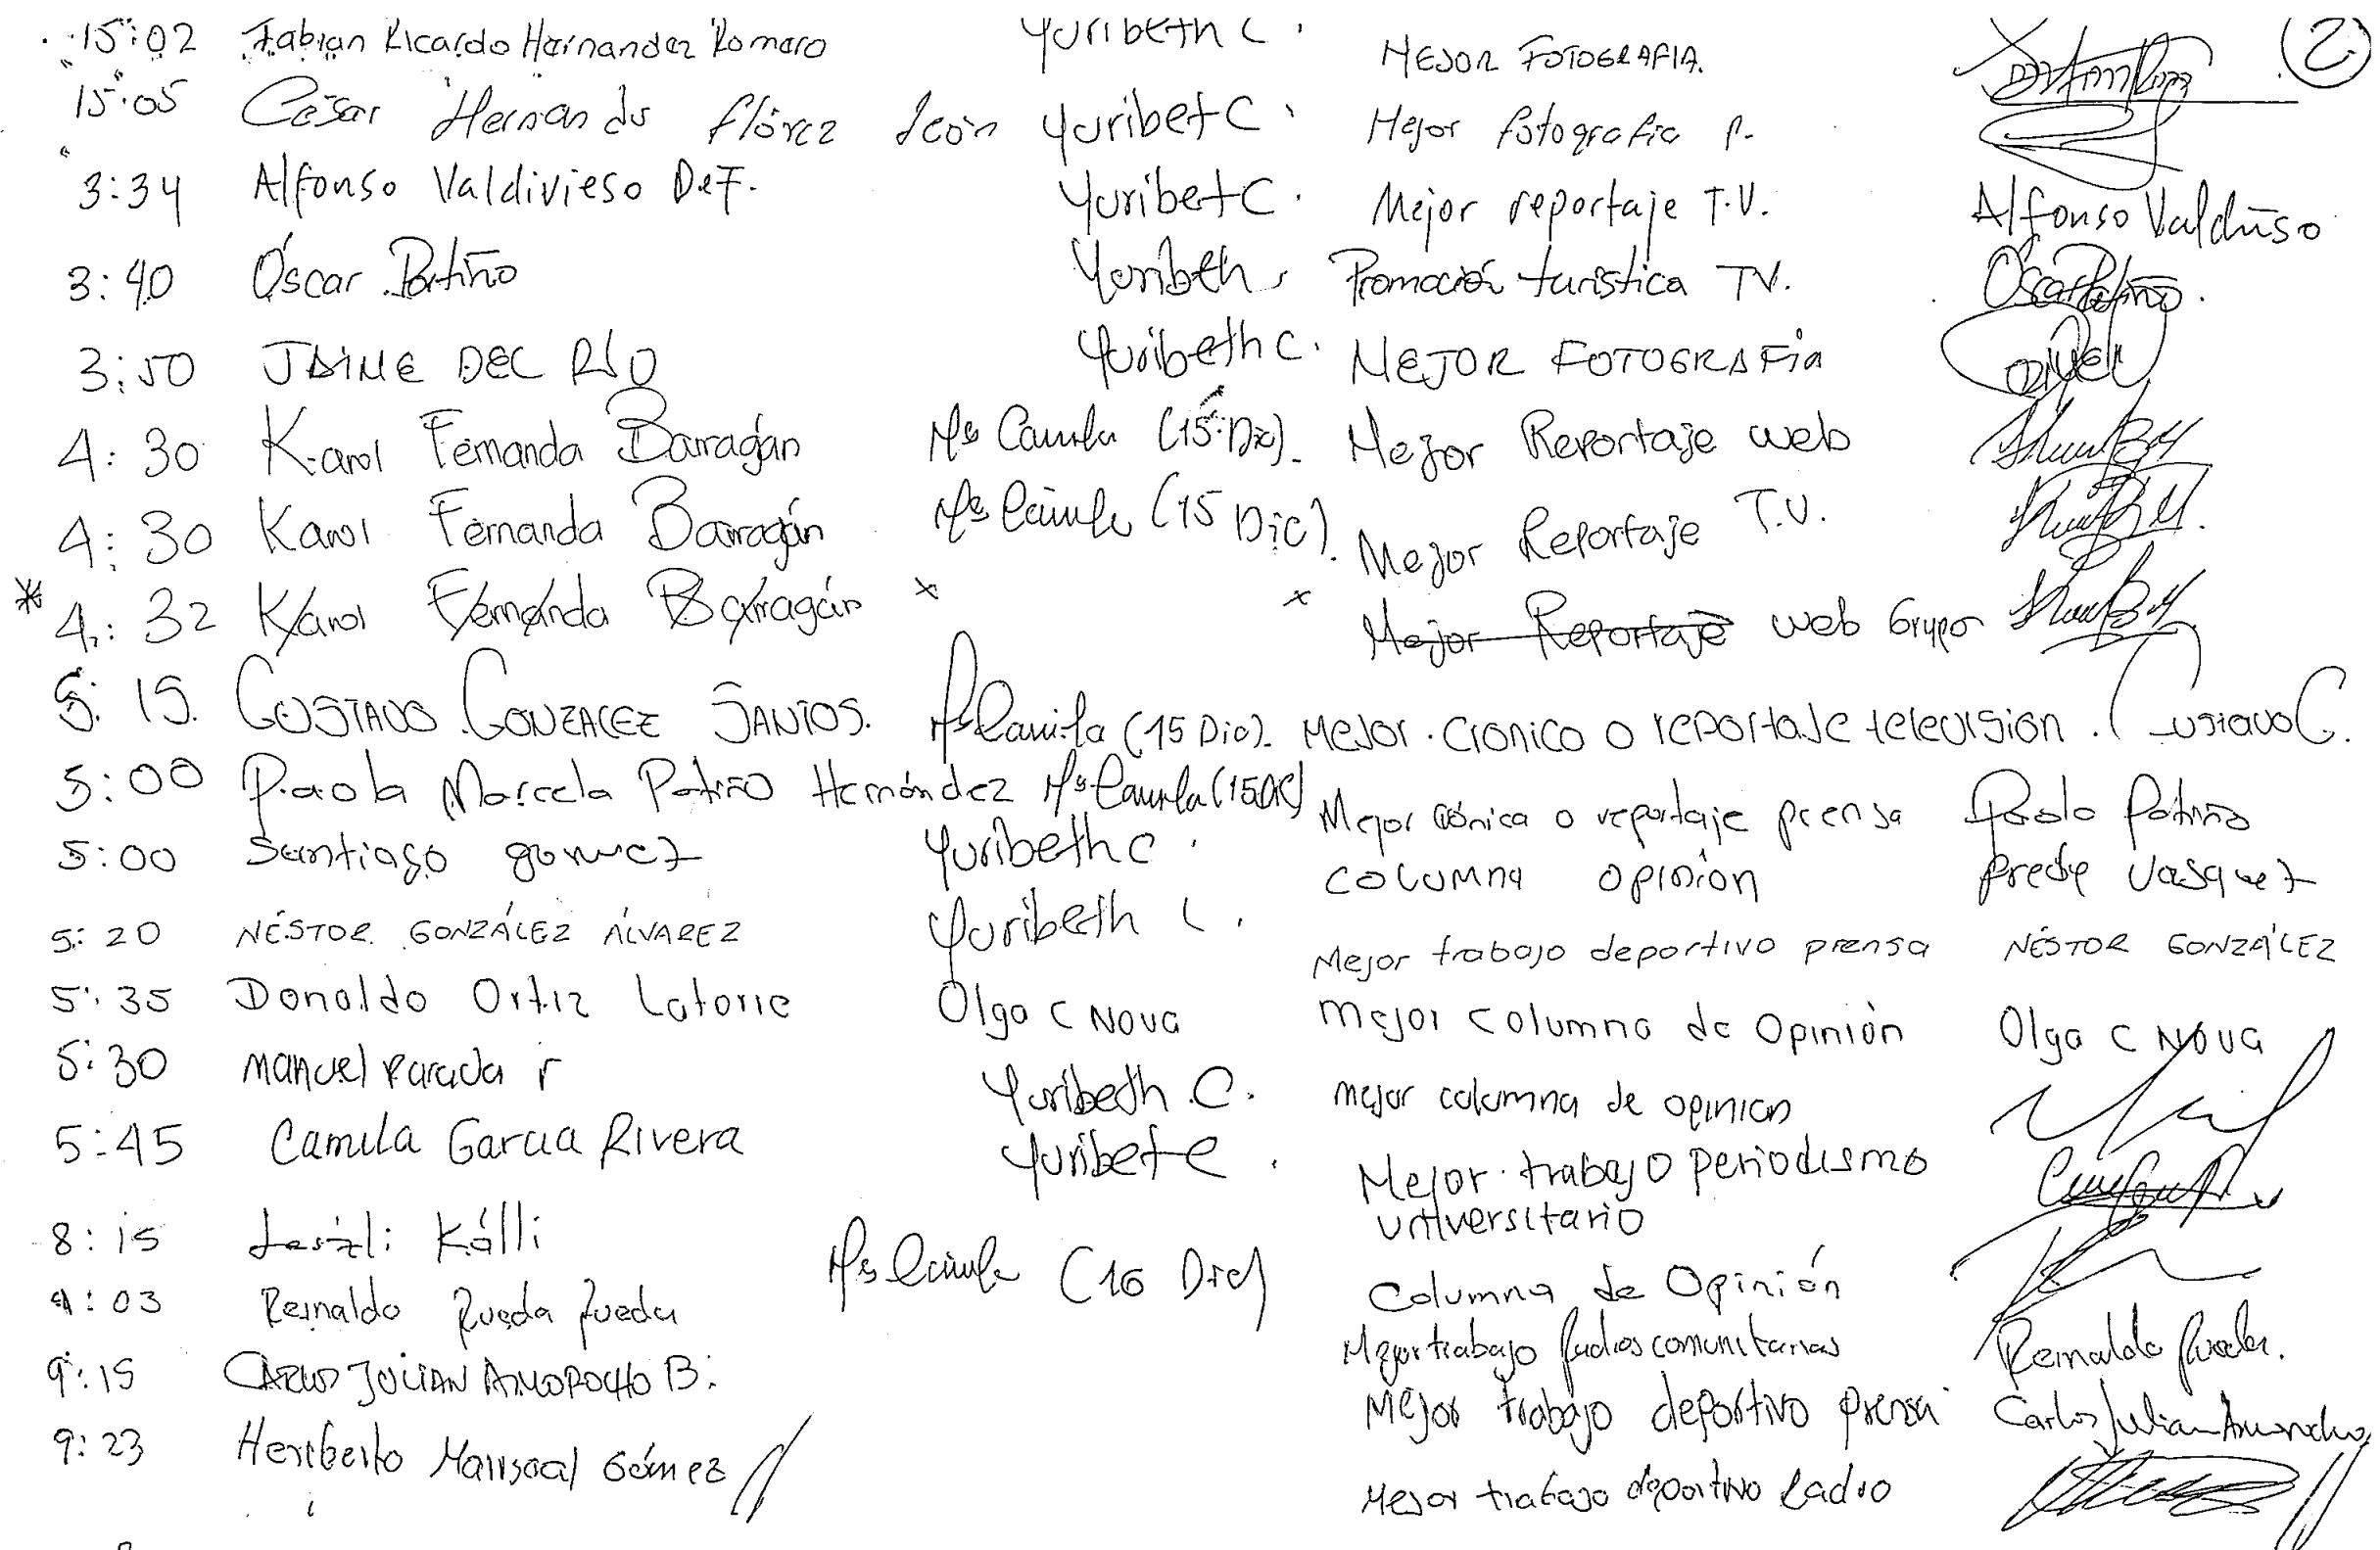 15:02 Fabian Ricardo Hernandez Romero Yuribeth C. MEJOR FOTOGRAFIA. 2
15:05 César Hernando flórez león Yuribet C. Mejor fotografia P.
3:34 Alfonso Valdivieso DeF. Yuribet C. Mejor reportaje T.V. Alfonso Valdivieso
3:40 Óscar Patiño Yuribeth Promoción turística TV. Óscar Patiño.
3:50 JAIME DEL RÍO Yuribeth C. MEJOR FOTOGRAFía
4:30 Karol Fernanda Barragán Ma Camila (15 Dic). Mejor Reportaje web
4:30 Karol Fernanda Barragán Ma Camila (15 Dic). Mejor Reportaje T.V.
* 4:32 Karol Fernanda Barragán x x Mejor Reportaje web Grupo
5:15. GUSTAVO GONZALEZ SANTOS. Ma Camila (15 Dic). Mejor cronica o reportaje television. Gustavo G.
5:00 Paola Marcela Patiño Hernández Ma Camila (15 Dic) Mejor crónica o reportaje prensa Paola Patiño
5:00 Santiago gomez Yuribeth C. columna opinion Vasquez
5:20 NÉSTOR GONZÁLEZ ÁLVAREZ Yuribeth C. Mejor trabajo deportivo prensa NÉSTOR GONZÁLEZ
5:35 Donaldo Ortiz Latorre Olga C Nova Mejor columna de Opinión Olga C Nova
5:30 Manuel Parada r Yuribeth C. mejor columna de opinion
5:45 Camila Garcia Rivera Yuribet C. Mejor trabajo periodismo
universitario
8:15 Leszli Kálli Ma Camila (16 Dic) Columna de Opinión
9:03 Reinaldo Rueda Rueda Mejor trabajo Radios comunitarias Reinaldo Rueda.
9:15 CARLOS JULIAN AMOROCHO B. Mejor trabajo deportivo prensa Carlos Julian Amorocho
9:23 Heriberto Mariscal Gómez Mejor trabajo deportivo Radio